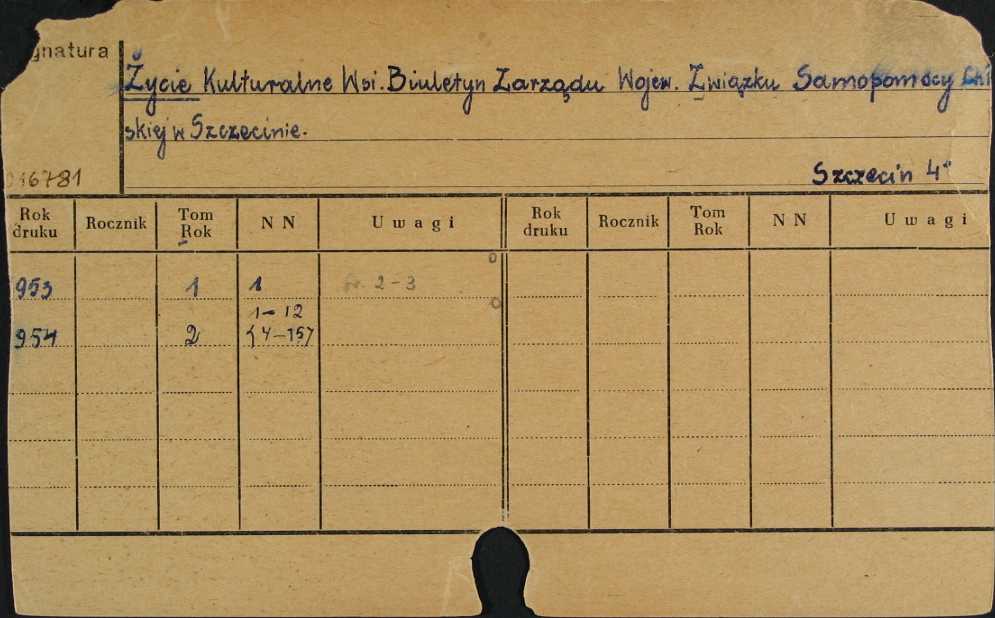 gnatura
Życie Kulturalne Wsi. Biuletyn Zarządu Wojew. Związku Samopomocy Chł
skiej w Szczecinie.
16781
Szczecin 4°
Rok druku Rocznik Tom Rok N N Uwagi Rok druku Rocznik Tom Rok N N Uwagi
953 1 1 nr. 2-3
1-12
954 2 (4-15)